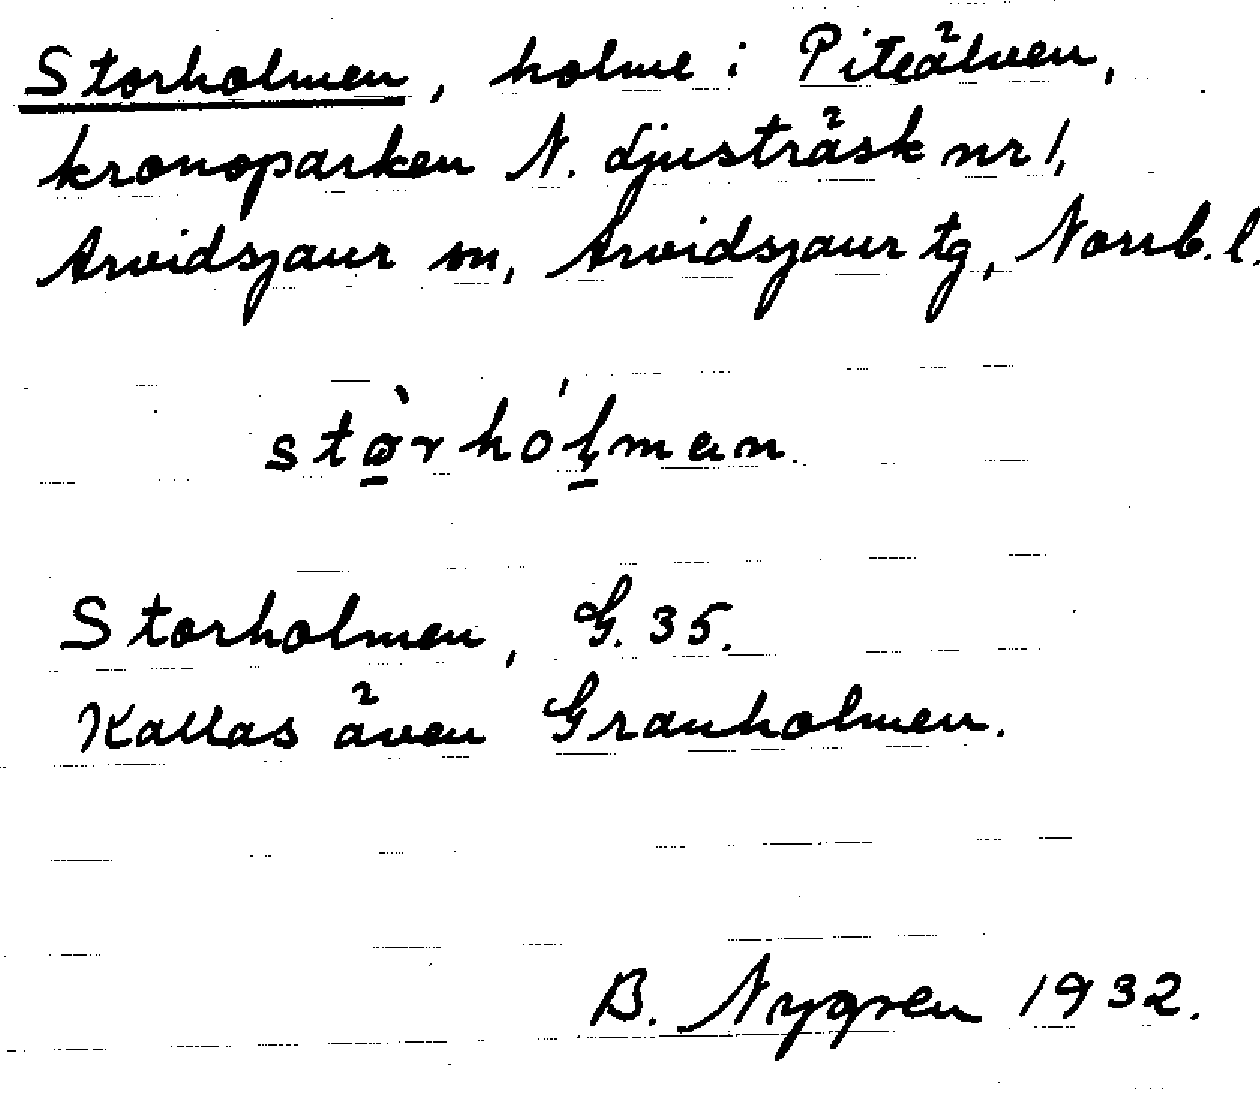 Storholmen, holme i Piteälven,
kronoparken N. Ljusträsk nr 1,
Arvidsjaur sn, Arvidsjaur tg, Norrb. l.
Storholmen, G. 35.
Kallas även Granholmen.
B. Nygren 1932.